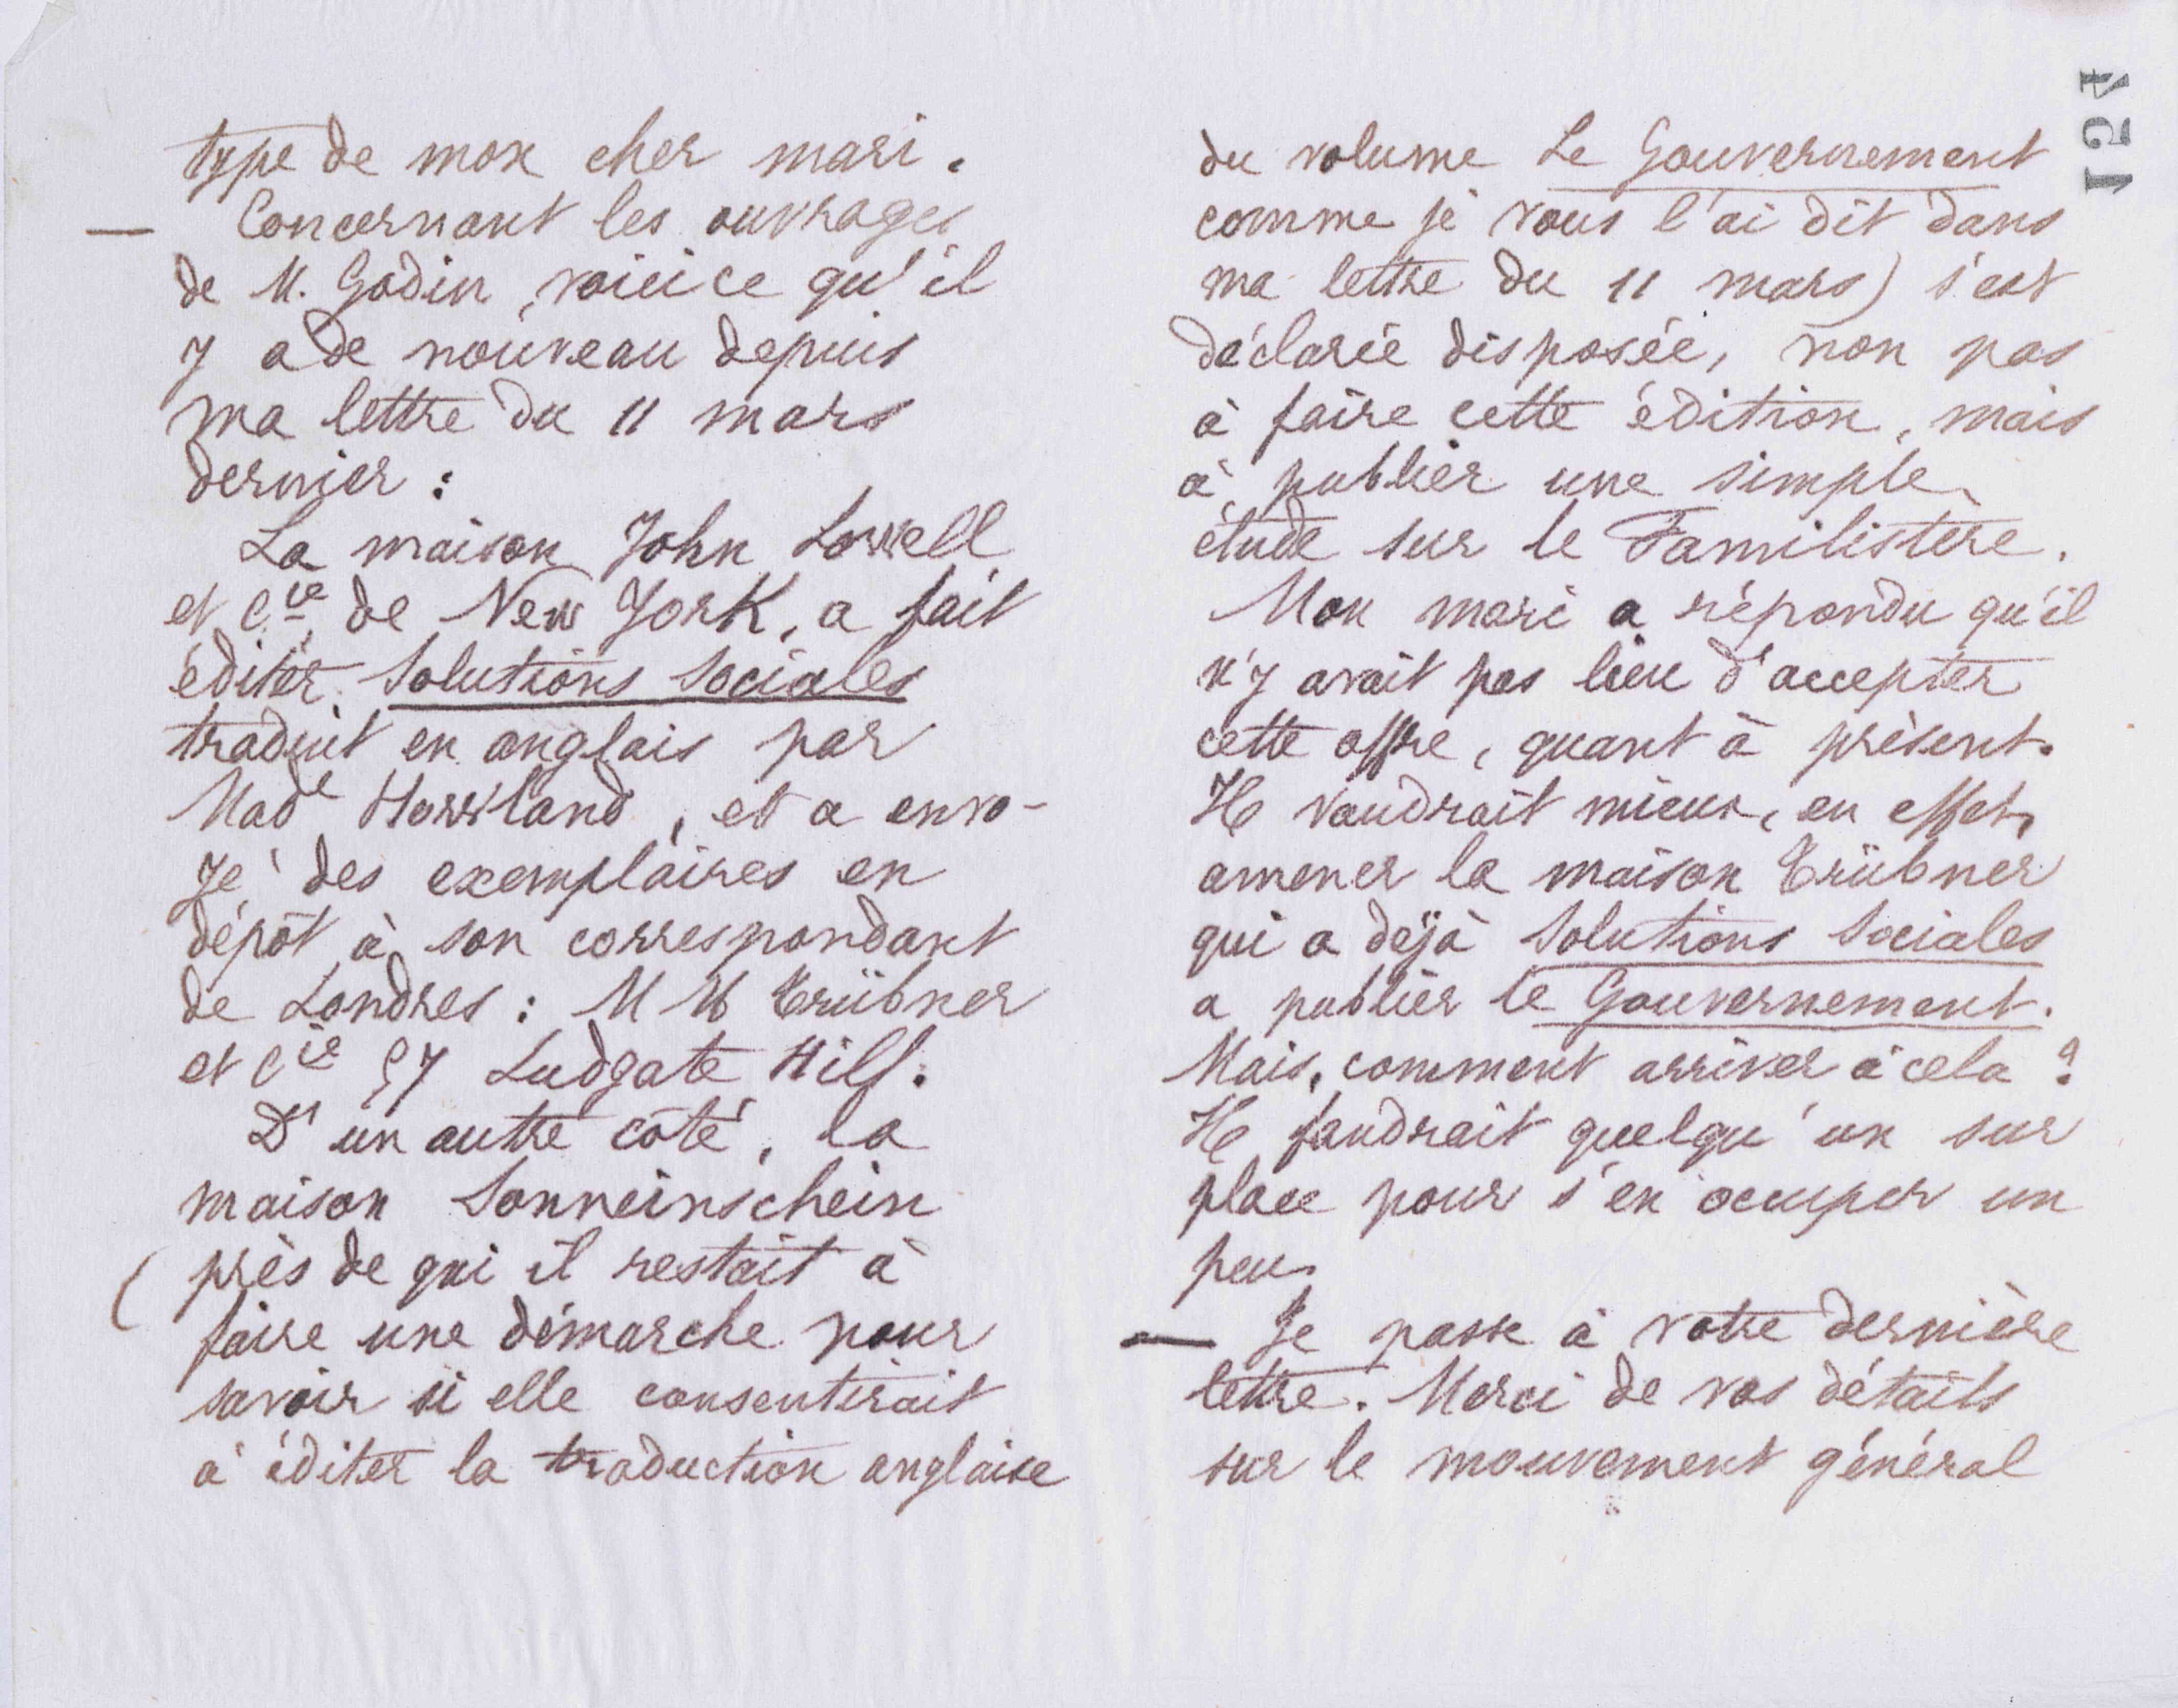 type de mon cher mari.
— Concernant les ouvrages
de M. Godin, voici ce qu'il
y a de nouveau depuis
ma lettre du 11 mars
dernier :
La maison John Lowell
et Cie de New York, a fait
éditer Solutions Sociales
traduit en anglais par
Made Howland, et a envo-
yé des exemplaires en
dépôt à son correspondant
de Londres : MM Trübner
et Cie 57 Ludgate Hill.
D'un autre côté, la
maison Sonneinschein
(près de qui il restait à
faire une démarche pour
savoir si elle consentirait
à éditer la traduction anglaise
124
du volume Le Gouvernement
comme je vous l'ai dit dans
ma lettre du 11 mars) s'est
déclarée disposée, non pas
à faire cette édition, mais
à publier une simple
étude sur le Familistère.
Mon mari a répondu qu'il
n'y avait pas lieu d'accepter
cette offre, quant à présent.
Il vaudrait mieux, en effet,
amener la maison Trübner
qui a déjà Solutions Sociales
a publier le Gouvernement.
Mais, comment arriver à cela ?
Il faudrait quelqu'un sur
place pour s'en occuper un
peu.
— Je passe à votre dernière
lettre. Merci de vos détails
sur le mouvement général